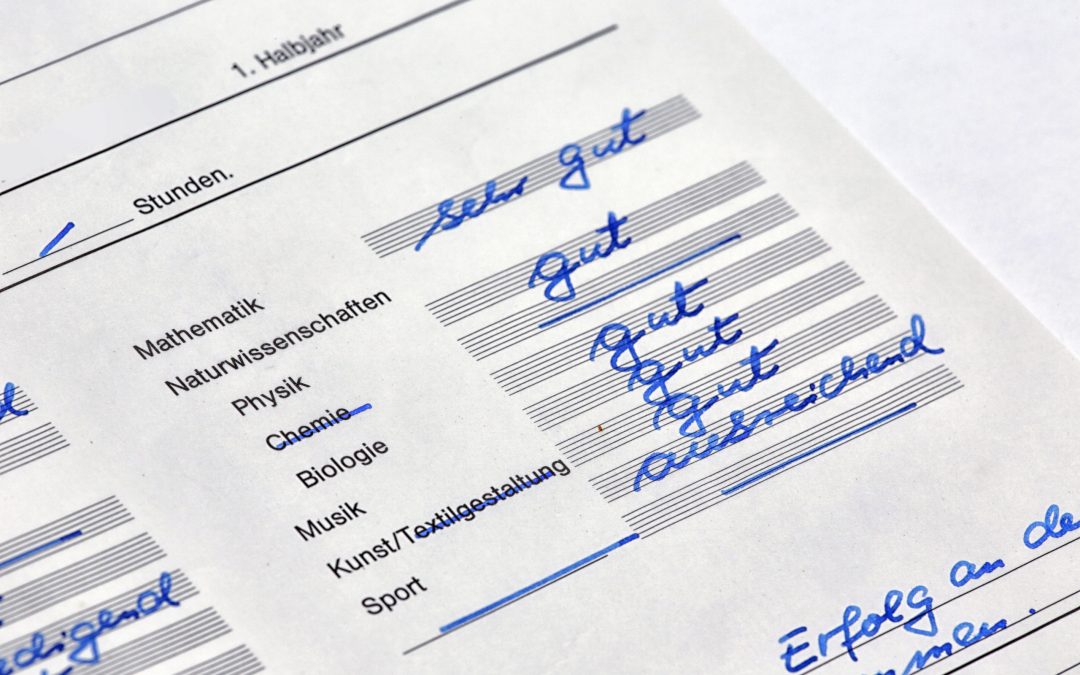 1. Halbjahr
Stunden.
Mathematik sehr gut
Naturwissenschaften gut
Physik
Chemie gut
Biologie gut
Musik gut
Kunst/Textilgestaltung ausreichend
Sport
edigend
Erfolg an de
mmen.